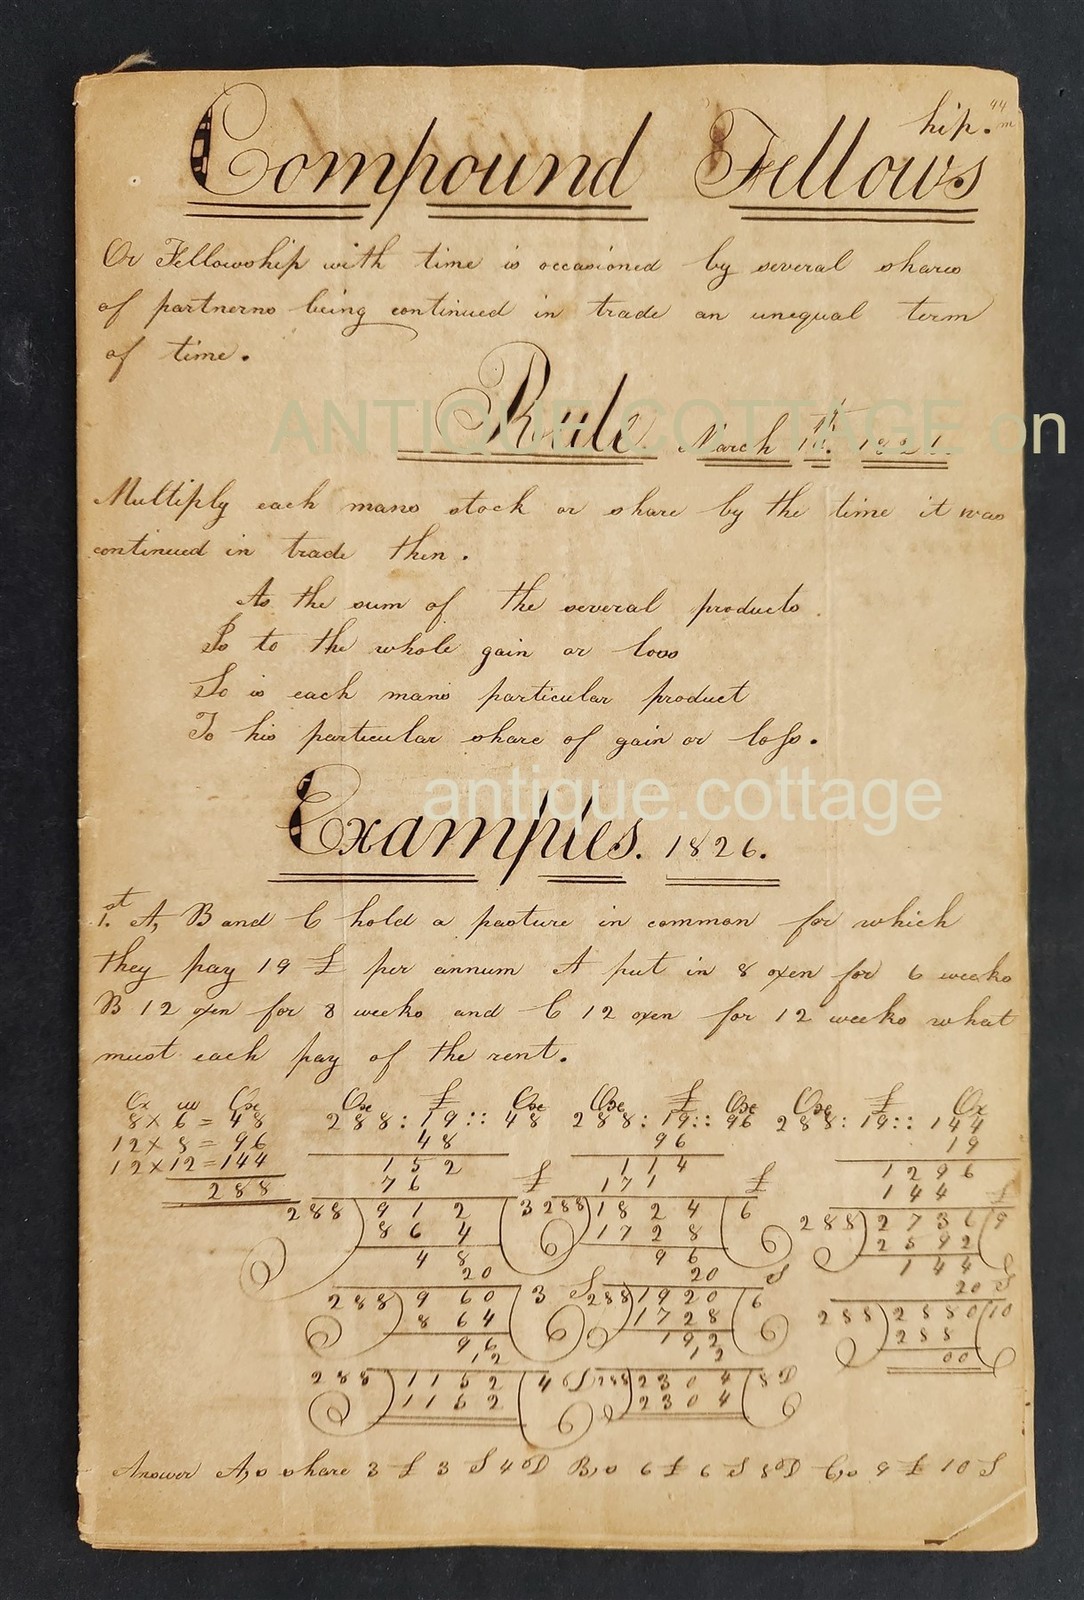 Compound Fellows
hip.
Or Fellowship with time is occasioned by several shares
of partnerns being continued in trade an unequal term
of time.
Rule March 1821.
Multiply each mans stock or share by the time it was
continued in trade then.
As the sum of the several products.
Is to the whole gain or loss
So is each mans particular product
To his particular share of gain or loss.
Examples. 1826.
1.st A, B and C hold a pasture in common for which
they pay 19 £ per annum A put in 8 oxen for 6 weeks
B 12 oxen for 8 weeks and C 12 oxen for 12 weeks what
must each pay of the rent.
Ox w Oxe Oxe £ Oxe Oxe £ Oxe Oxe £ Ox
8 x 6 = 48 288 : 19 :: 48 288 : 19 :: 96 288 : 19 :: 144
12 x 8 = 96 48 96 19
12 x 12 = 144 152 114 1296
288 76 £ 171 £ 144 £
288) 912 (3 288) 1824 (6 288) 2736 (9
864 1728 2592
48 96 144
20 20 S 20 S
288) 960 (3 S 288) 1920 (6 288) 2880 (10
864 1728 288
96 192 00
12 12
288) 1152 (4 D 288) 2304 (8 D
1152 2304
Answer A,s share 3 £ 3 S 4 D B,s 6 £ 6 S 8 D C,s 9 £ 10 S
ANTIQUE COTTAGE on
antique.cottage